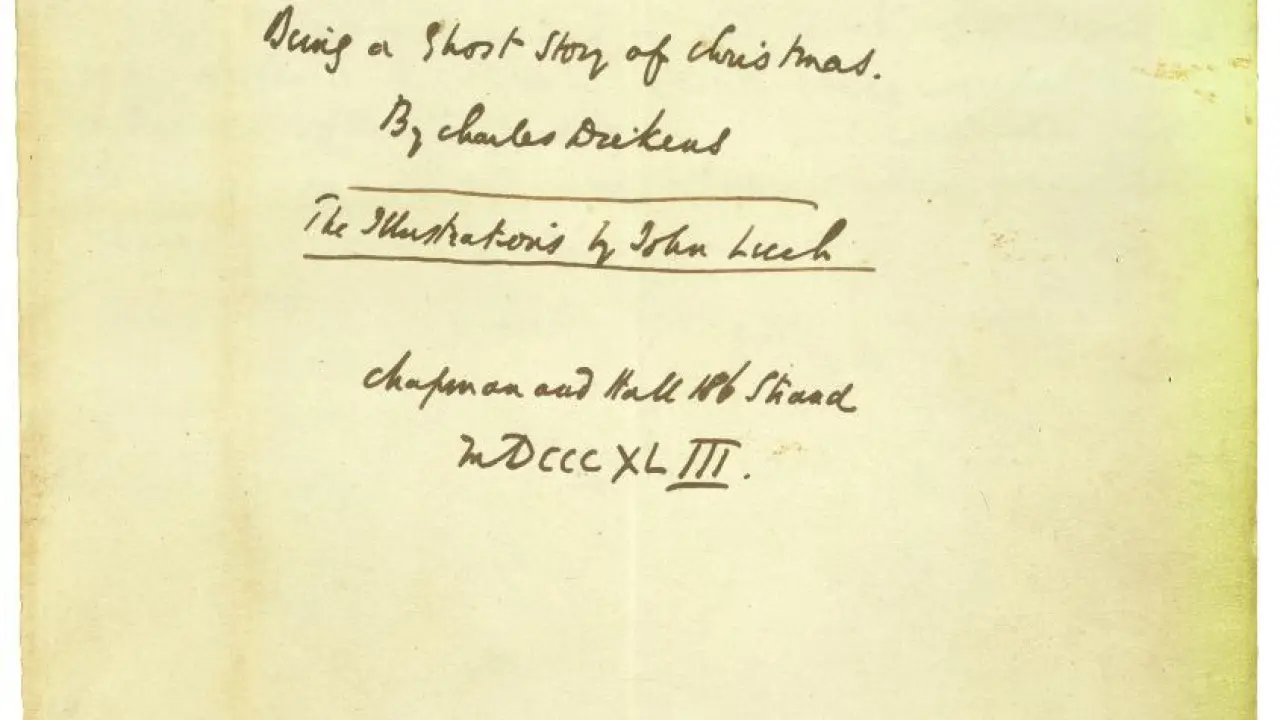 Being a Ghost Story of Christmas.
By Charles Dickens
The Illustrations by John Leech
Chapman and Hall 186 Strand
MDCCCXLIII.